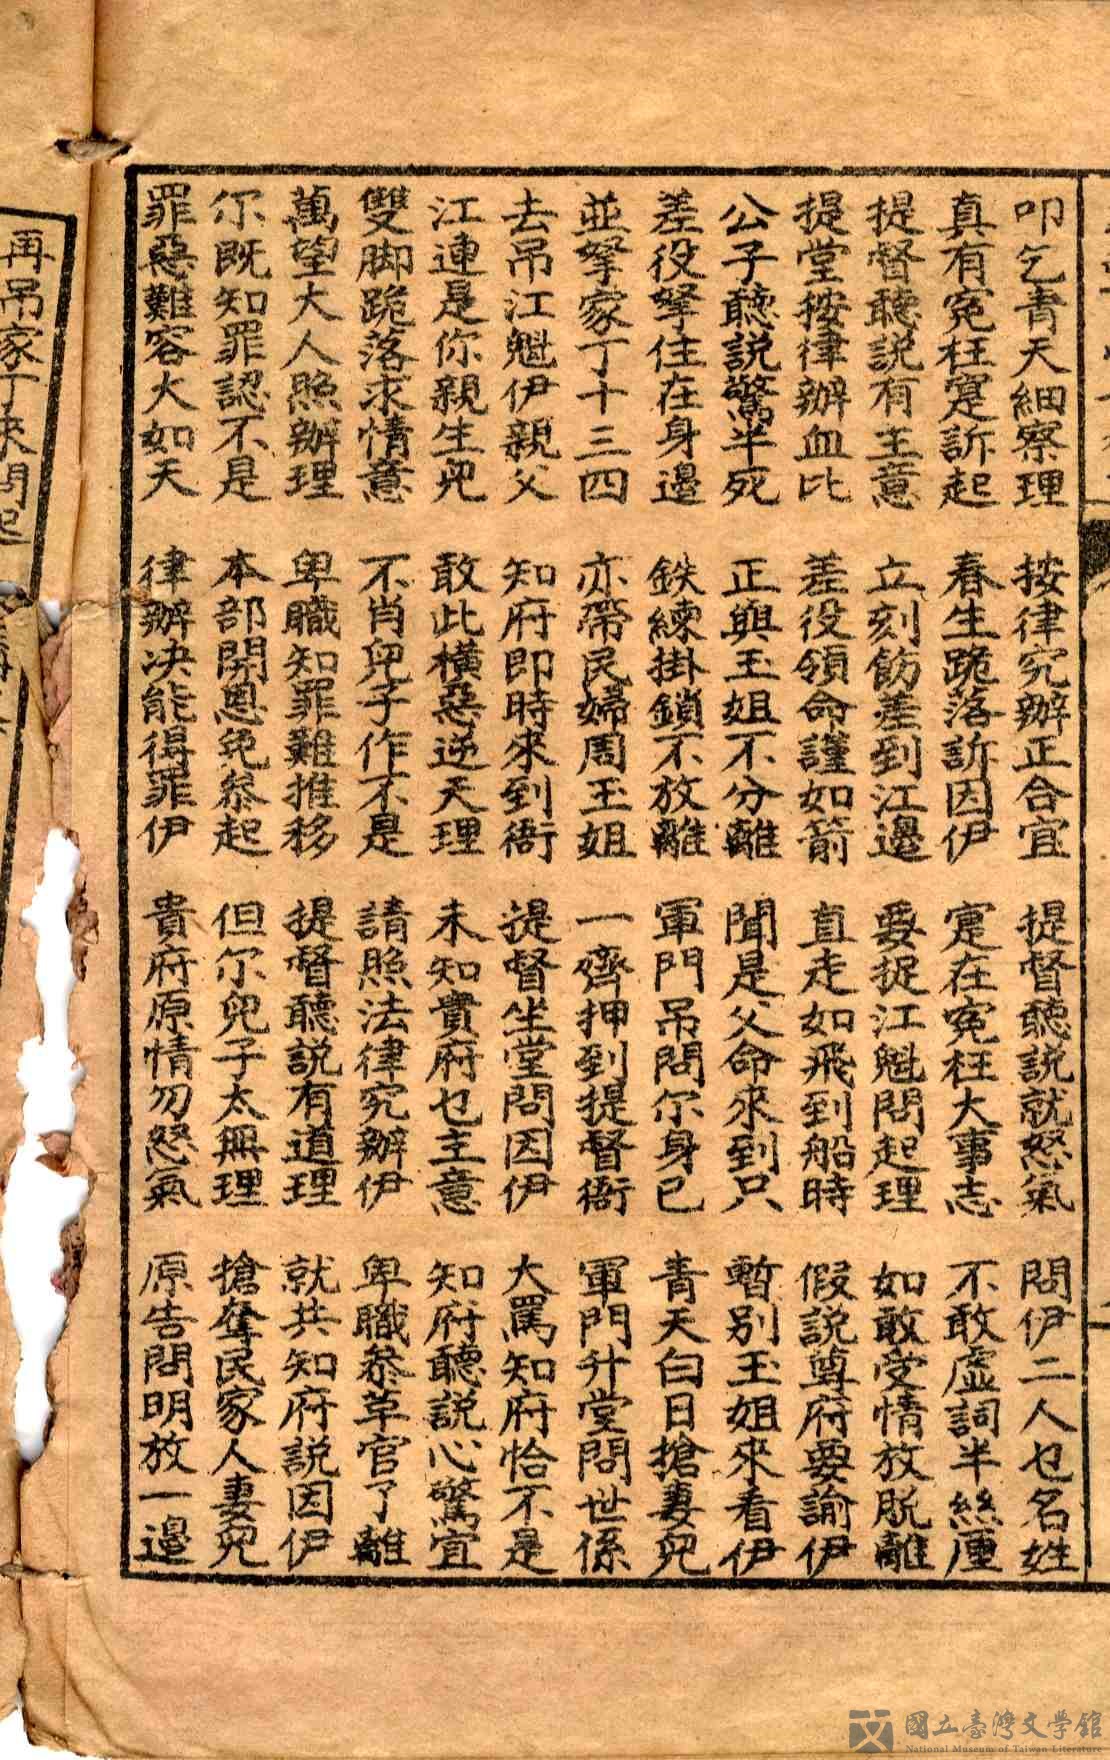 叩乞青天細察理 按律究辦正合宜 提督聽說就怒氣 問伊二人乜名姓
真有冤枉寔訴起 春生跪落訴因伊 寔在冤枉大事志 不敢虛詞半絲厘
提督聽說有主意 立刻飭差到江邊 要捉江魁問起理 如敢受情放脫離
提堂按律辦血比 差役領命謹如箭 直走如飛到船時 假說尊府要諭伊
公子聽說驚半死 正與玉姐不分離 聞是父命來到只 暫別玉姐來看伊
差役拏住在身邊 鉄練掛鎖不放離 軍門吊問尔身己 青天白日搶妻兒
並拏家丁十三四 亦帶民婦周玉姐 一齊押到提督衙 軍門升堂問世係
去吊江魁伊親父 知府即時來到衙 提督坐堂問因伊 大罵知府恰不是
江連是你親生兒 敢此橫惡逆天理 未知貴府乜主意 知府聽說心驚宜
雙脚跪落求情意 不肖兒子作不是 請照法律究辦伊 卑職叅革官了離
萬望大人照辦理 卑職知罪難推移 提督聽說有道理 就共知府說因伊
尔既知罪認不是 本部開恩免叅起 但尔兒子太無理 搶奪民家人妻兒
罪惡難容大如天 律辦决能得罪伊 貴府原情勿怒氣 原告問明放一邊
再吊家丁來問起
國立臺灣文學館
National Museum of Taiwan Literature